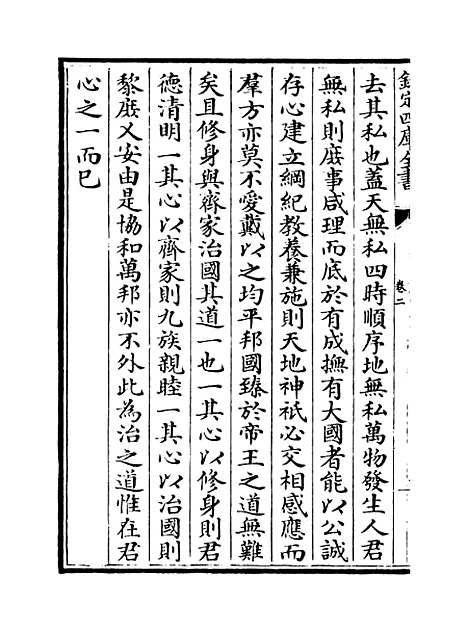 欽定四庫全書
卷二
去其私也蓋天無私四時順序地無私萬物發生人君
無私則庶事咸理而底於有成撫有大國者能以公誠
存心建立綱紀教養兼施則天地神祇必交相感應而
羣方亦莫不愛戴以之均平邦國臻於帝王之道無難
矣且修身與齊家治國其道一也一其心以修身則君
德清明一其心以齊家則九族親睦一其心以治國則
黎庶乂安由是協和萬邦亦不外此為治之道惟在君
心之一而已